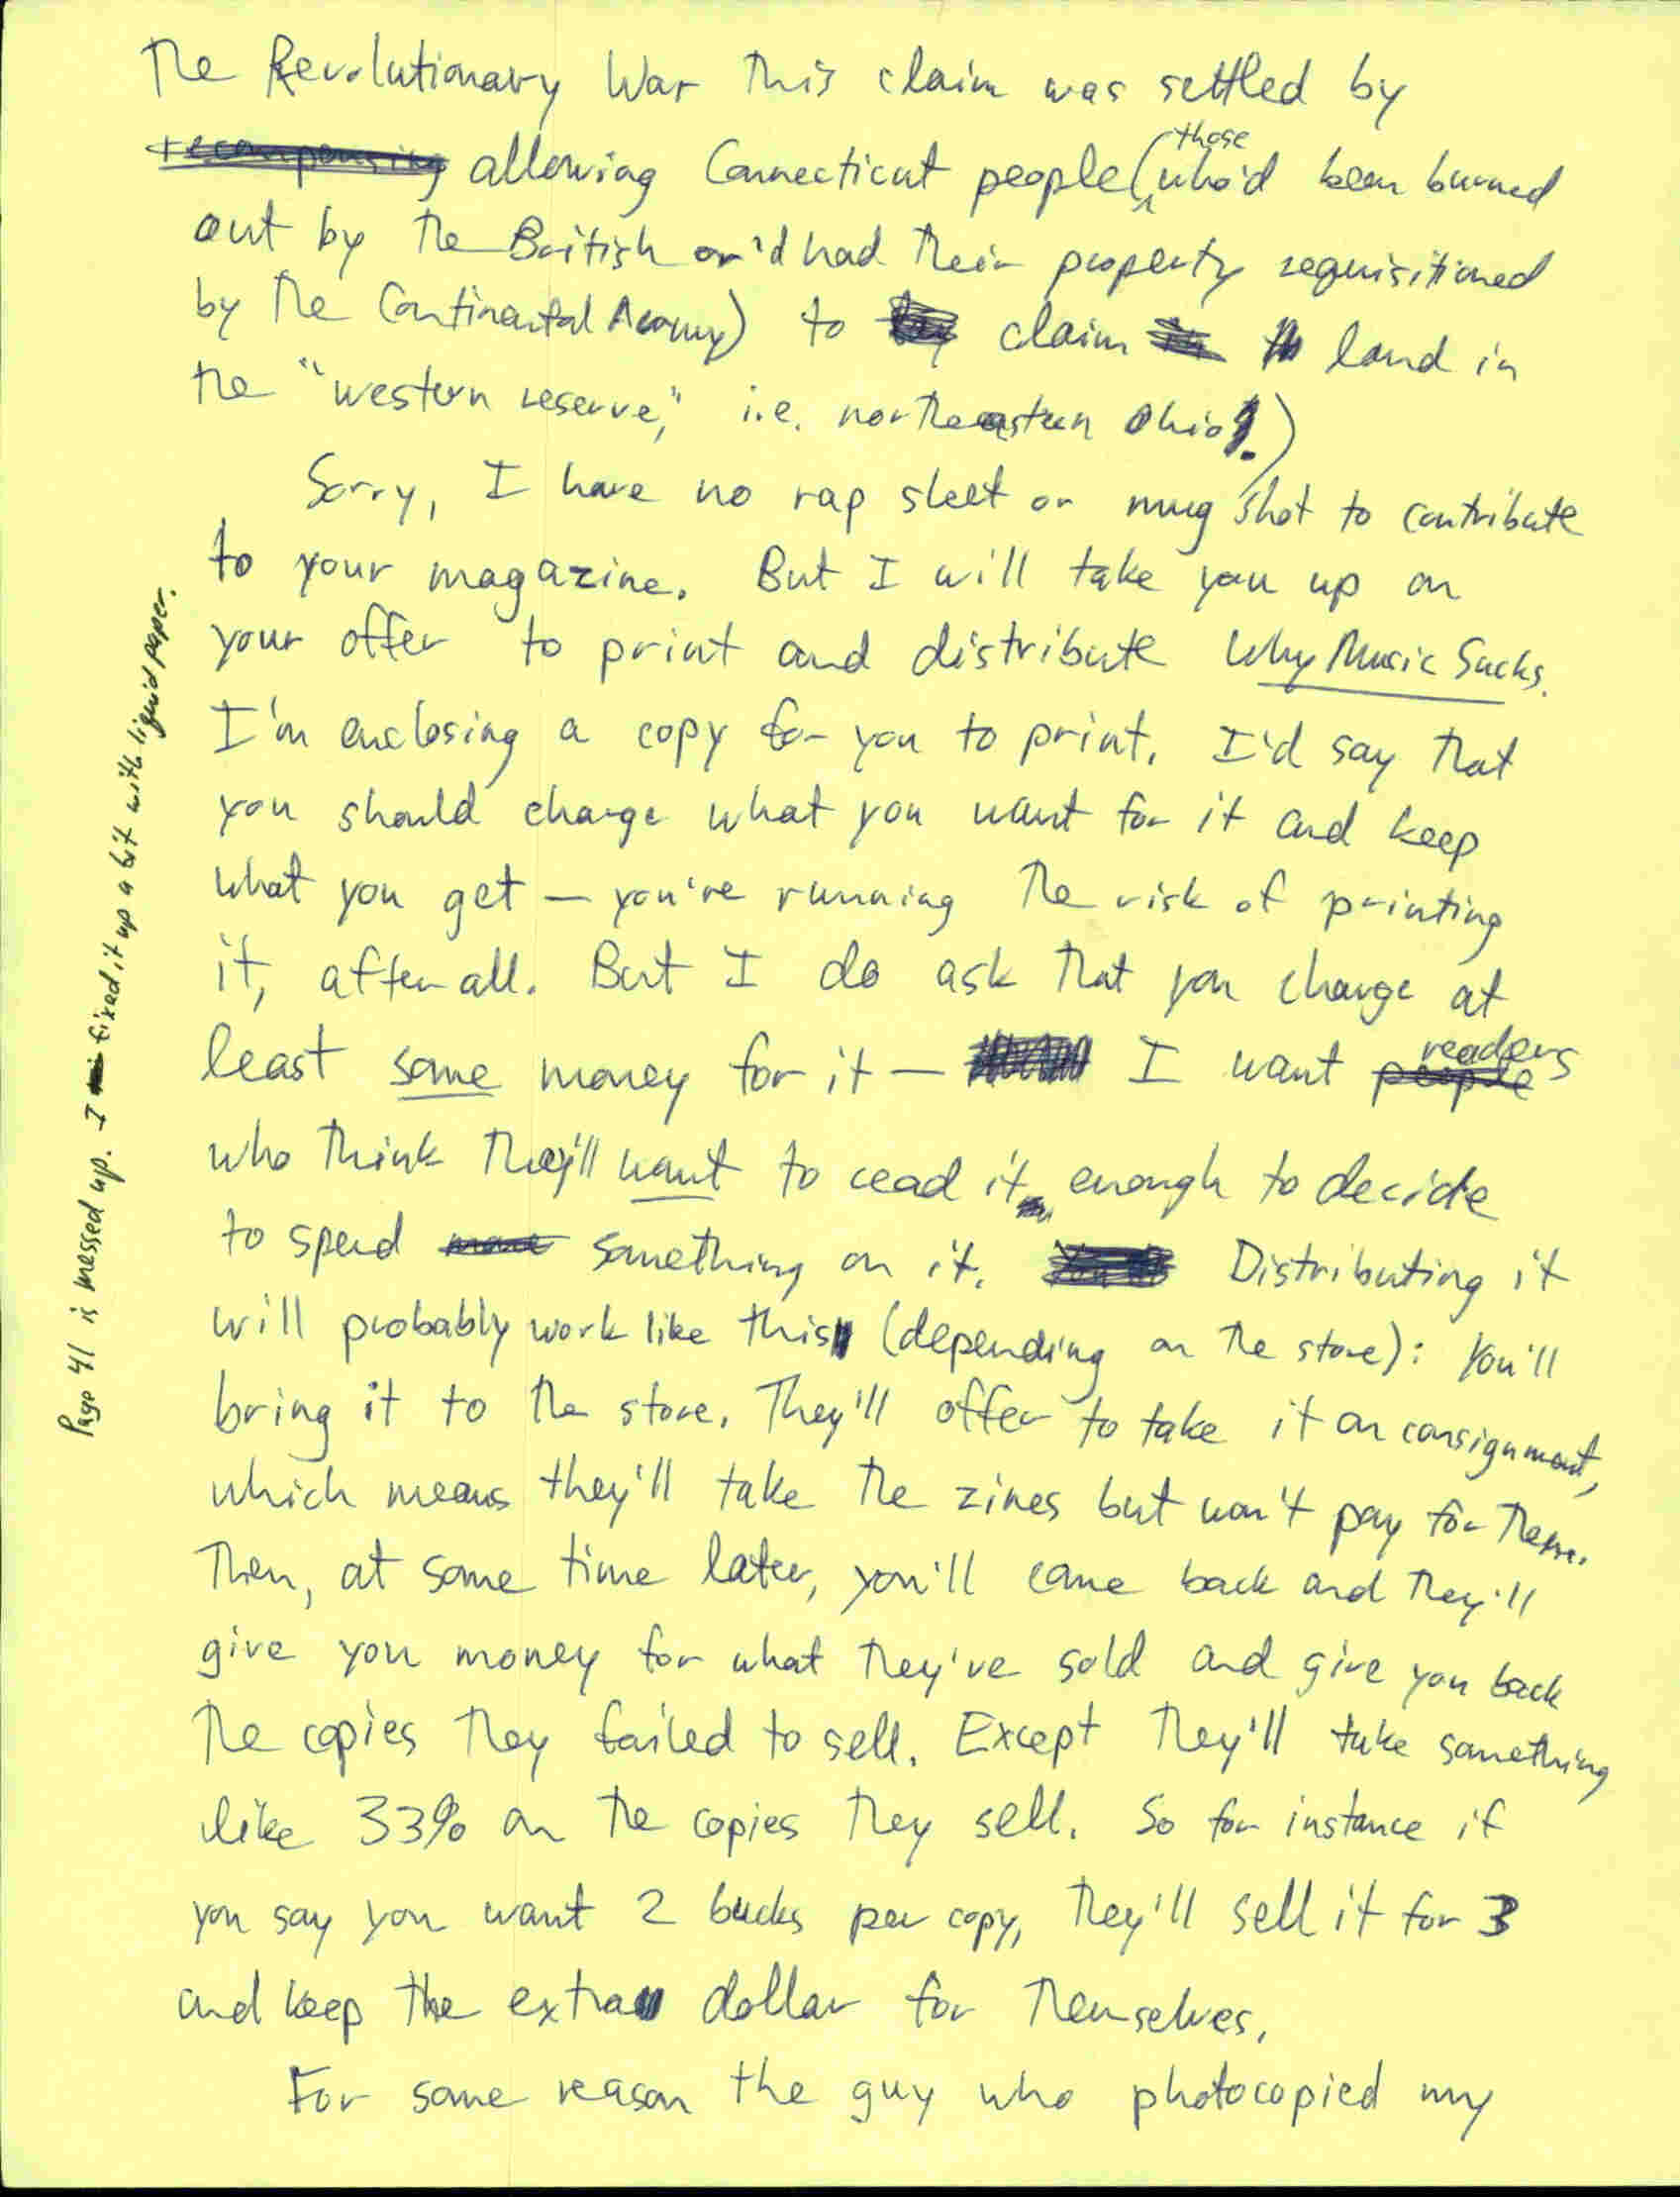 The Revolutionary War this claim was settled by
recompensing allowing Connecticut people (those who'd been burned
out by the British or'd had their property requisitioned
by the Continental Army) to claim land in
the "western reserve," i.e. northeastern Ohio.)
Sorry, I have no rap sheet or mug shot to contribute
to your magazine. But I will take you up on
your offer to print and distribute Why Music Sucks.
I'm enclosing a copy for you to print. I'd say that
you should charge what you want for it and keep
what you get — you're running the risk of printing
it, after all. But I do ask that you charge at
least some money for it — I want people readers
who think they'll want to read it enough to decide
to spend something on it. Distributing it
will probably work like this (depending on the store): You'll
bring it to the store. They'll offer to take it on consignment,
which means they'll take the zines but won't pay for them.
Then, at some time later, you'll come back and they'll
give you money for what they've sold and give you back
the copies they failed to sell. Except they'll take something
like 33% on the copies they sell. So for instance if
you say you want 2 bucks per copy, they'll sell it for 3
and keep the extra dollar for themselves.
For some reason the guy who photocopied my
Page 41 is messed up. I fixed it up a bit with liquid paper.